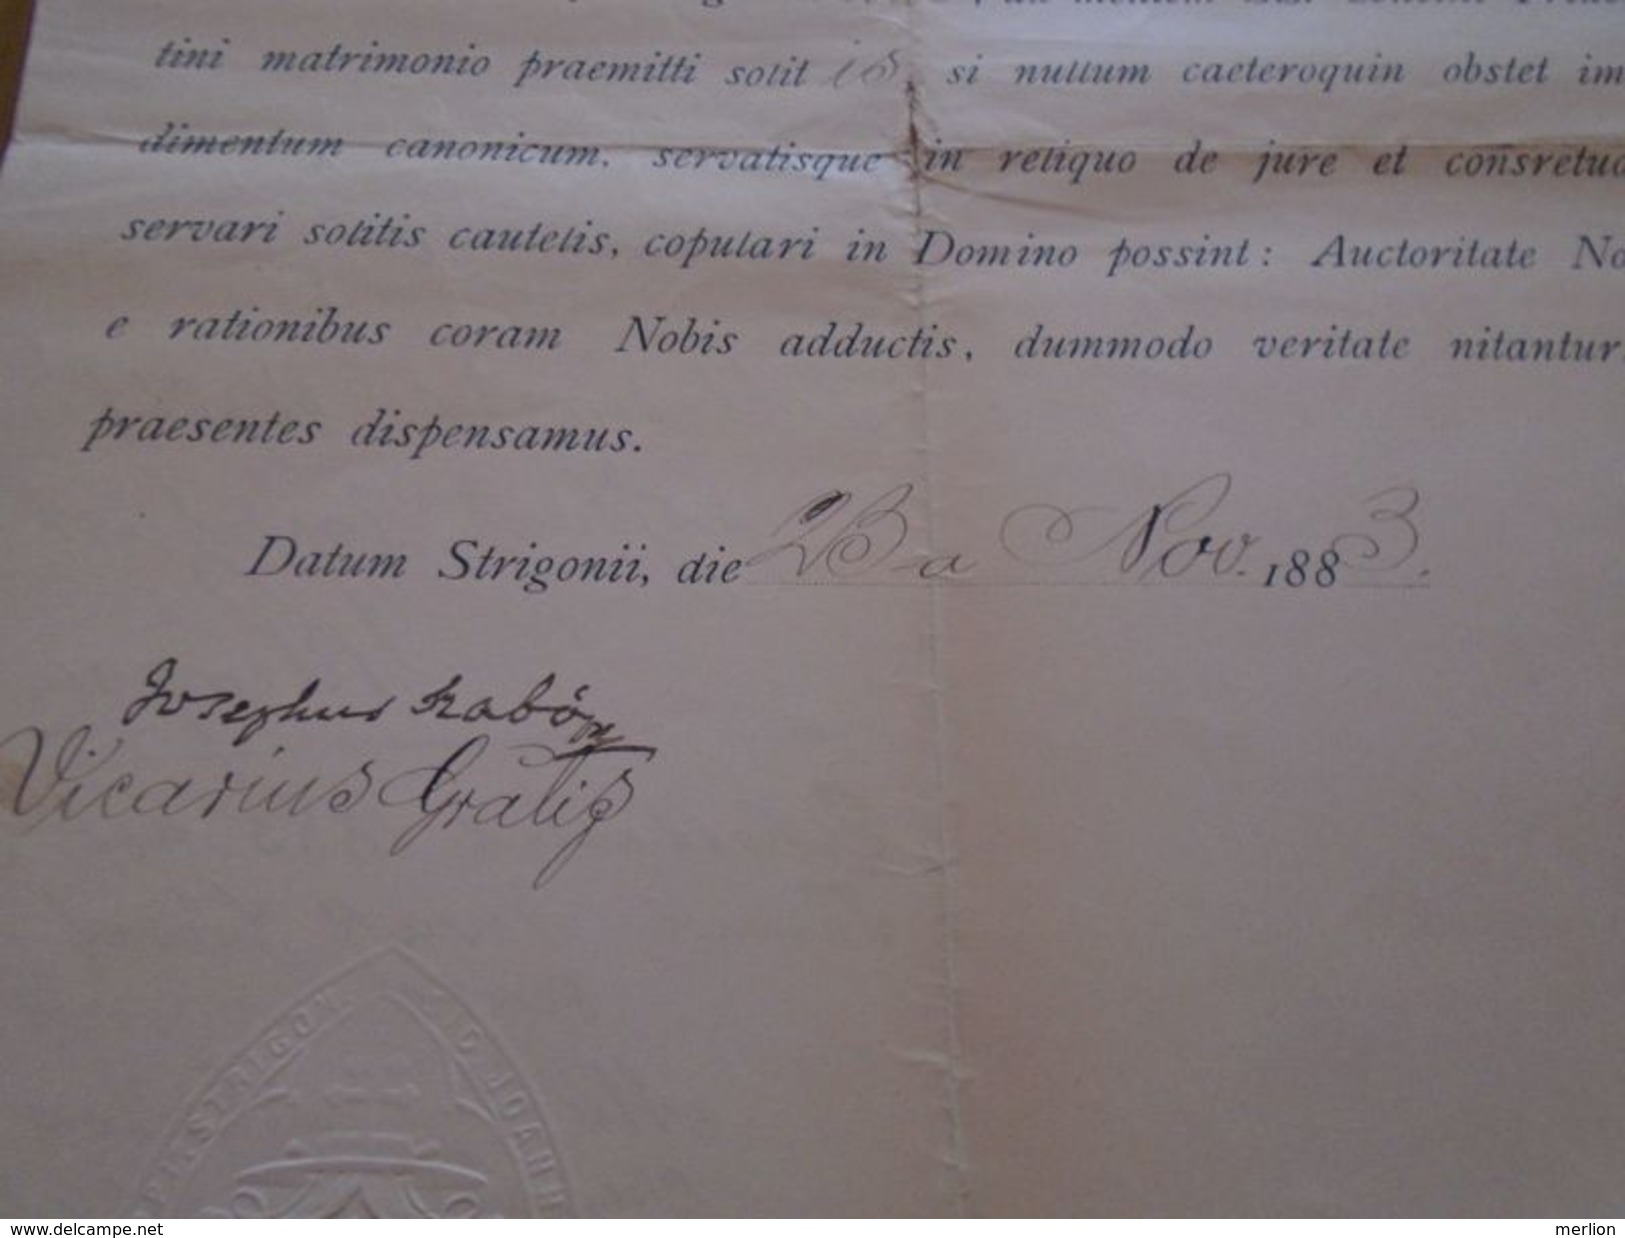 tini matrimonio praemitti solit is, si nullum caeteroquin obstet im
dimentum canonicum, servatisque in reliquo de jure et consretud
servari solitis cautelis, copulari in Domino possint: Auctoritate No
e rationibus coram Nobis adductis, dummodo veritate nitantur,
praesentes dispensamus.
Datum Strigonii, die 23-a Nov. 1883.
Josephus Szabó
Vicarius Gralis
STRIGON. D. JOANN
www.delcampe.net
merlion